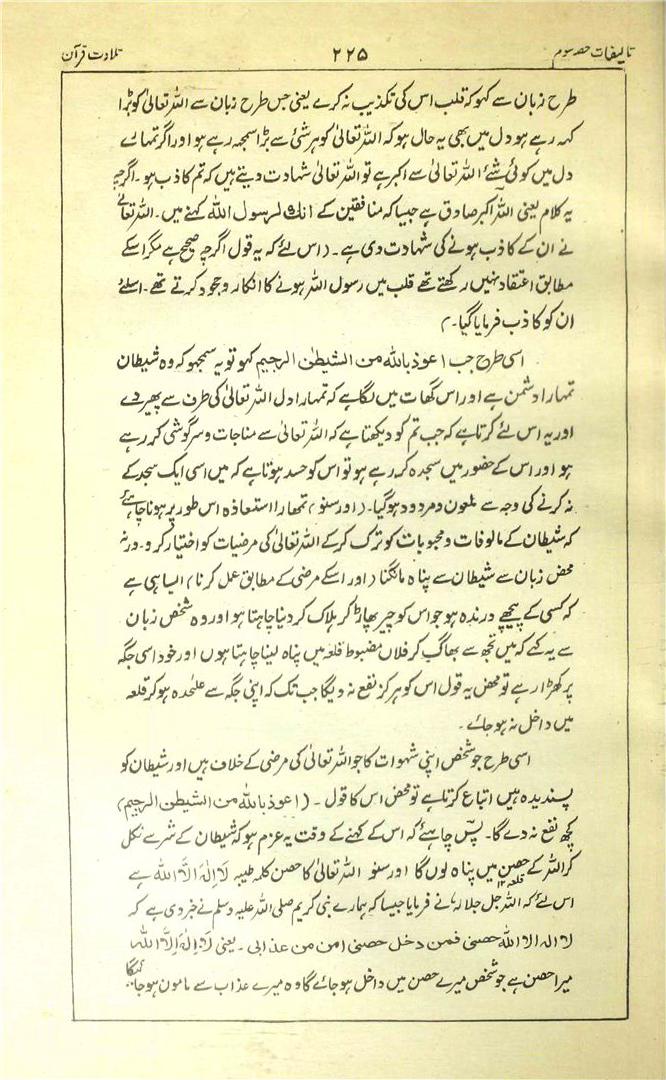 تالیفات حصہ سوم ۲۲۵ تلاوت قرآن
طرح زبان سے کہو کہ قلب اس کی تکذیب نہ کرے یعنی جس طرح زبان سے اللہ تعالیٰ کو بڑا
کہہ رہے ہو دل میں بھی یہ حال ہو کہ اللہ تعالیٰ کو ہر شئ سے بڑا سمجھ رہے ہو اور اگر تمہارے
دل میں کوئی شے اللہ تعالیٰ سے اکبر ہے تو اللہ تعالیٰ شہادت دیتے ہیں کہ تم کاذب ہو ۔ اگرچہ
یہ کلام یعنی اللہ اکبر صادق ہے جیسا کہ منافقین کے انك لرسول الله کہنے میں ۔ اللہ تعالیٰ
نے ان کے کاذب ہونے کی شہادت دی ہے ۔ (اس لئے کہ یہ قول اگرچہ صحیح ہے مگر اسکے
مطابق اعتقاد نہیں رکھتے تھے قلب میں رسول اللہ ہونے کا انکار وجحود کرتے تھے ۔ اسلئے
ان کو کاذب فرمایا گیا ۔)
اسی طرح جب اعوذ بالله من الشیطٰن الرجیم کہو تو یہ سمجھو کہ وہ شیطان
تمہارا دشمن ہے اور اس گھات میں لگا ہے کہ تمہارا دل اللہ تعالیٰ کی طرف سے پھیر دے
اور یہ اس لئے کرتا ہے کہ جب تم کو دیکھتا ہے کہ اللہ تعالیٰ سے مناجات وسرگوشی کر رہے
ہو اور اس کے حضور میں سجدہ کر رہے ہو تو اس کو حسد ہوتا ہے کہ میں اسی ایک سجدے کے
نہ کرنے کی وجہ سے ملعون ومردود ہوگیا ۔ (اور سنو) تمھارا استعاذہ اس طور پر ہونا چاہئے
کہ شیطان کے مالوفات ومحبوبات کو ترک کرکے اللہ تعالیٰ کی مرضیات کو اختیار کرو ۔ ورنہ
محض زبان سے شیطان سے پناہ مانگنا (اور اسکے مرضی کے مطابق عمل کرنا) ایسا ہی ہے
کہ کسی کے پیچھے درندہ ہو جو اس کو چیر پھاڑ کر ہلاک کر دینا چاہتا ہو اور وہ شخص زبان
سے یہ کہے کہ میں تجھ سے بھاگ کر فلاں مضبوط قلعہ میں پناہ لینا چاہتا ہوں اور خود اسی جگہ
پر کھڑا رہے تو محض یہ قول اس کو ہرگز نفع نہ دیگا جب تک کہ اپنی جگہ سے علٰحدہ ہو کر قلعہ
میں داخل نہ ہو جائے ۔
اسی طرح جو شخص اپنی شہوات کا جو اللہ تعالیٰ کی مرضی کے خلاف ہیں اور شیطان کو
پسندیدہ ہیں اتباع کرتا ہے تو محض اس کا قول ۔ (اعوذ بالله من الشیطٰن الرجیم)
کچھ نفع نہ دے گا ۔ پس چاہئے کہ اس کے کہنے کے وقت یہ عزم ہو کہ شیطان کے شر سے نکل
کر اللہ کے حصن میں پناہ لوں گا اور سنو اللہ تعالیٰ کا حصن کلمہ طیبہ لَا اِلٰهَ اِلَّا الله ہے
قلعہ ۱۲
اس لئے کہ اللہ جل جلالہ نے فرمایا جیسا کہ ہمارے نبی کریم صلی اللہ علیہ وسلم نے خبر دی ہے کہ
لا اله الا الله حصنی فمن دخل حصنی امن من عذابی ۔ یعنی لَا اِلٰهَ اِلَّا الله
میرا حصن ہے جو شخص میرے حصن میں داخل ہو جائے گا وہ میرے عذاب سے مامون ہوجائیگا